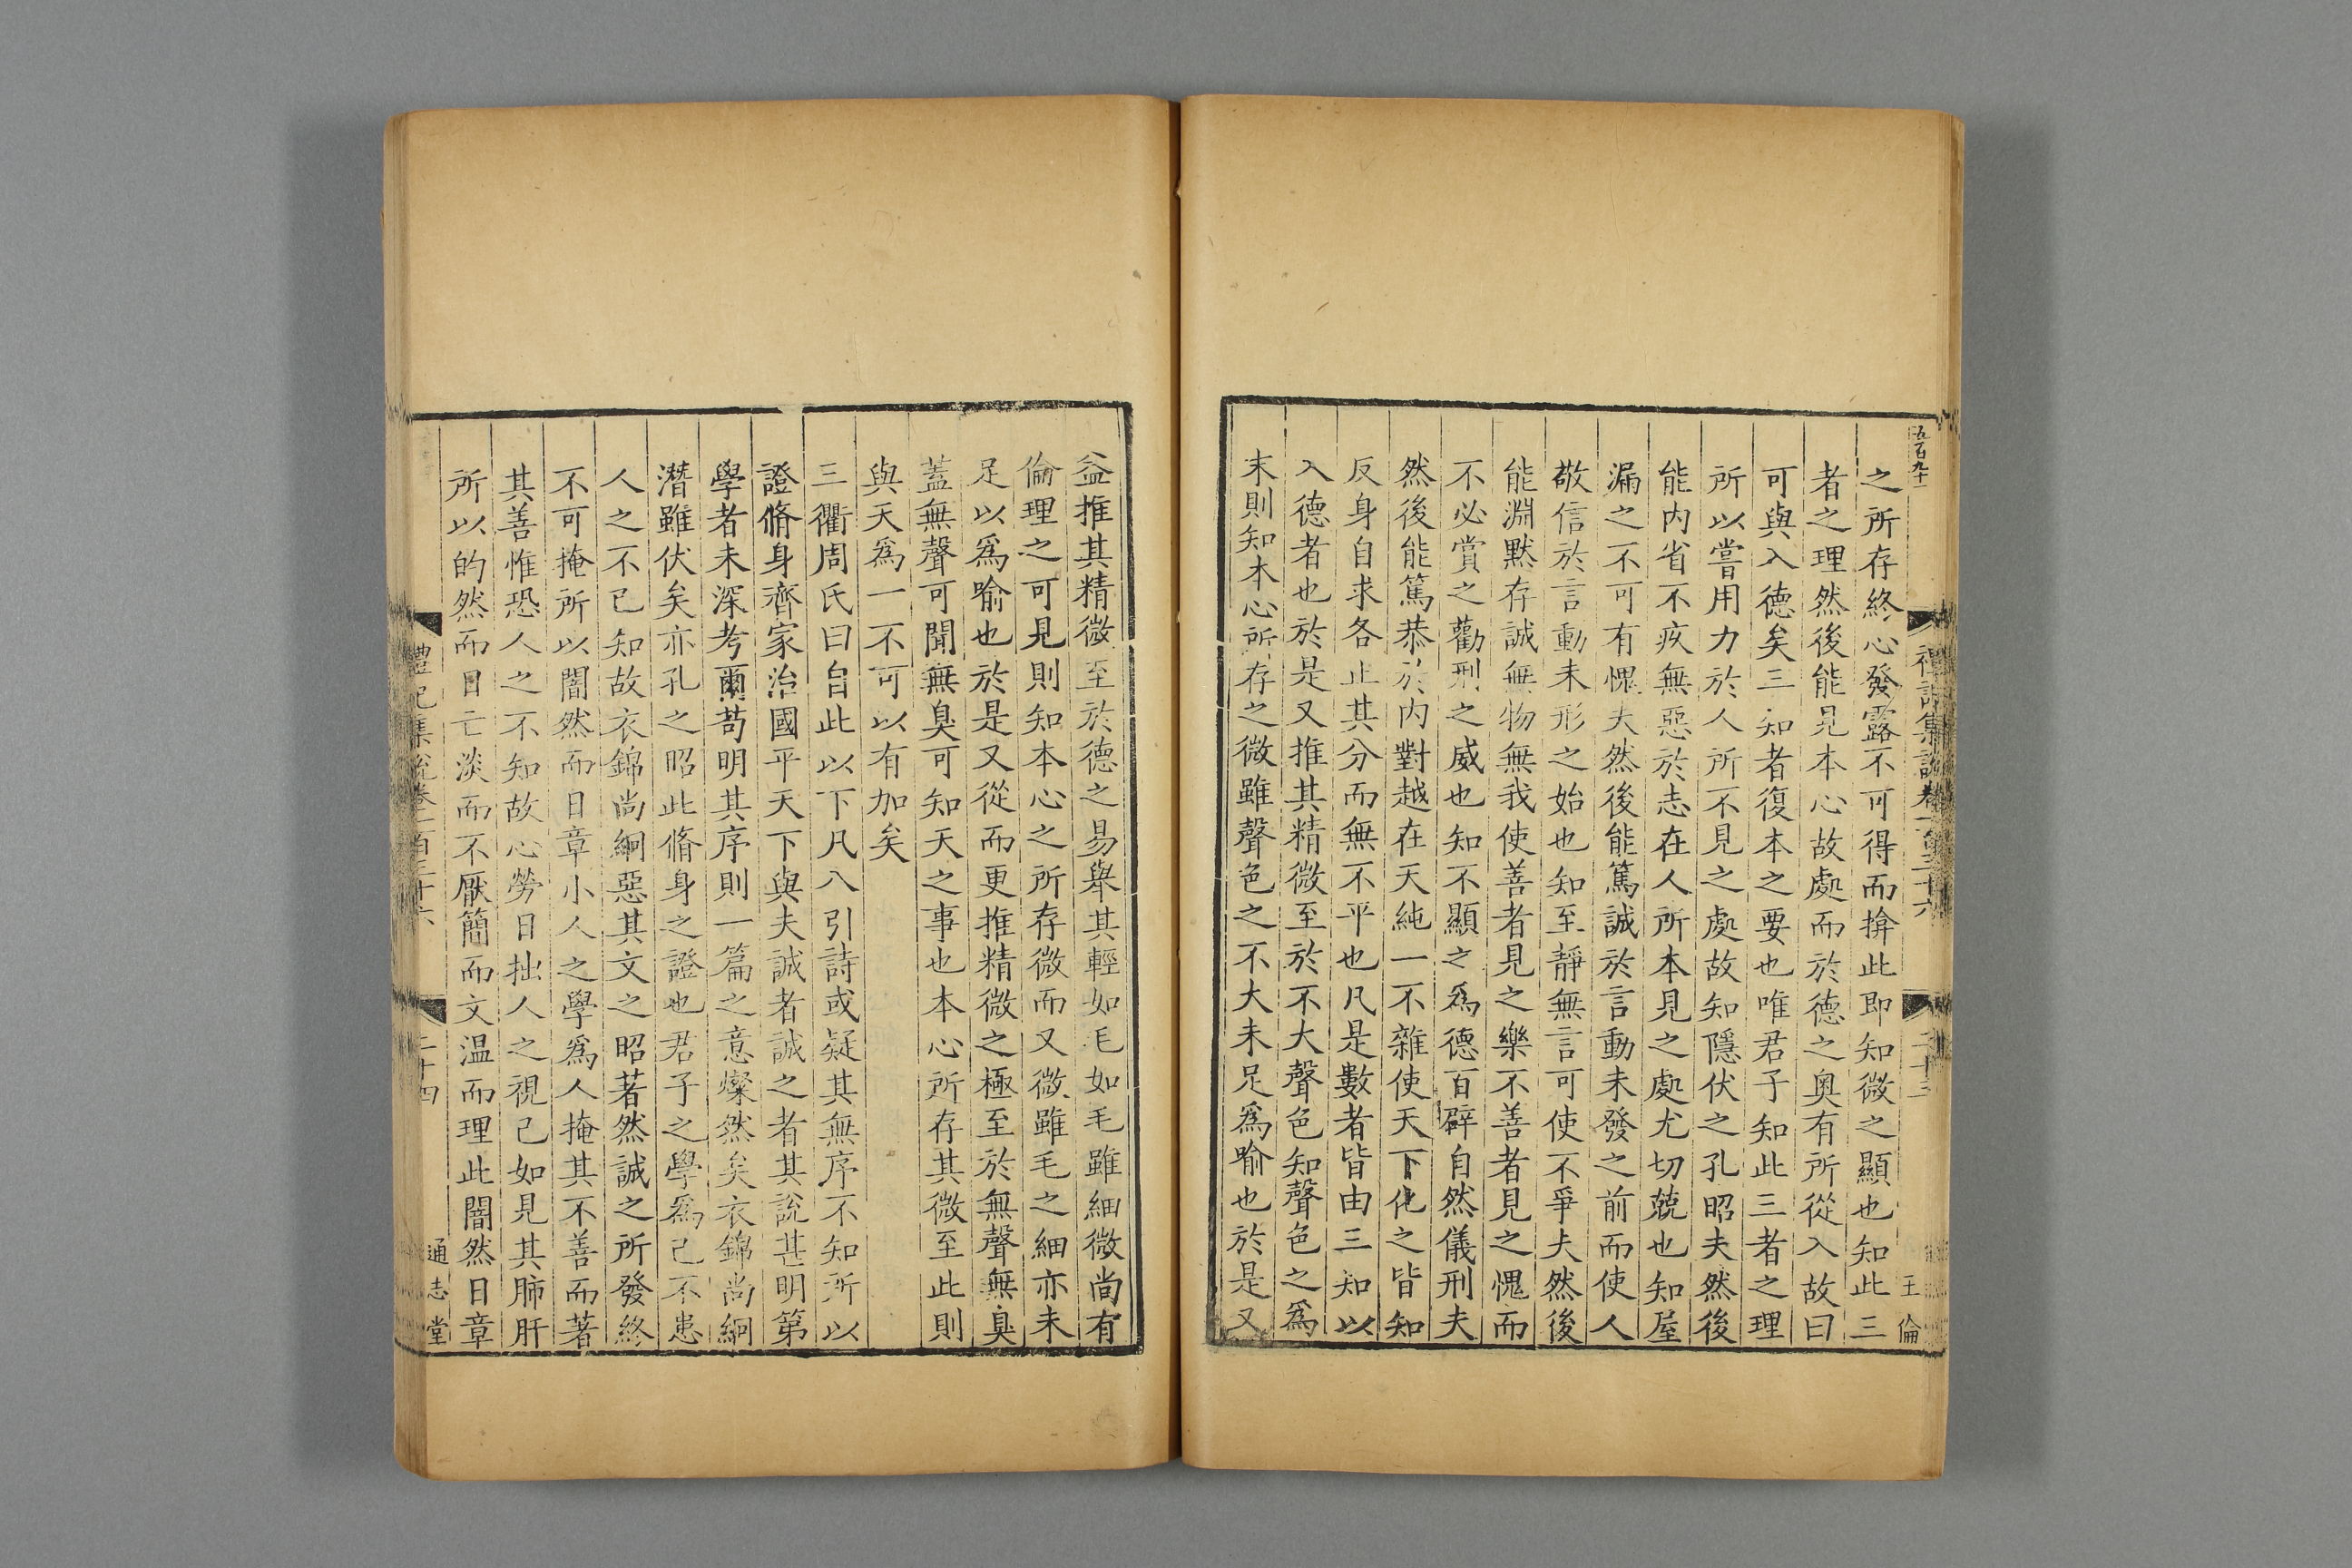 五百九十一
之所存終心發露不可得而揜此即知微之顯也知此三
者之理然後能見本心故處而於德之奥有所從入故曰
可與入德矣三知者復本之要也唯君子知此三者之理
所以嘗用力於人所不見之處故知隱伏之孔昭夫然後
能内省不疚無惡於志在人所本見之處尤切兢也知屋
漏之不可有愧夫然後能篤誠於言動未發之前而使人
敬信於言動未形之始也知至靜無言可使不爭夫然後
能淵默存誠無物無我使善者見之樂不善者見之愧而
不必賞之勸刑之威也知不顯之爲德百辟自然儀刑夫
然後能篤恭於内對越在天純一不雜使天下化之皆知
反身自求各止其分而無不平也凡是數者皆由三知以
入德者也於是又推其精微至於不大聲色知聲色之爲
末則知本心所存之微雖聲色之不大未足爲喻也於是又
禮記集說卷一百三十六
二十三
王倫
益推其精微至於德之易舉其輕如毛如毛雖細微尚有
倫理之可見則知本心之所存微而又微雖毛之細亦未
足以爲喻也於是又從而更推精微之極至於無聲無臭
蓋無聲可聞無臭可知天之事也本心所存其微至此則
與天爲一不可以有加矣
三衢周氏曰自此以下凡八引詩或疑其無序不知所以
證脩身齊家治國平天下與夫誠者誠之者其說甚明第
學者未深考爾苟明其序則一篇之意燦然矣衣錦尚絅
潛雖伏矣亦孔之昭此脩身之證也君子之學爲己不患
人之不已知故衣錦尚絅惡其文之昭著然誠之所發終
不可掩所以闇然而日章小人之學爲人掩其不善而著
其善惟恐人之不知故心勞日拙人之視己如見其肺肝
所以的然而日亡淡而不厭簡而文温而理此闇然日章
禮記集說卷一百三十六
二十四
通志堂